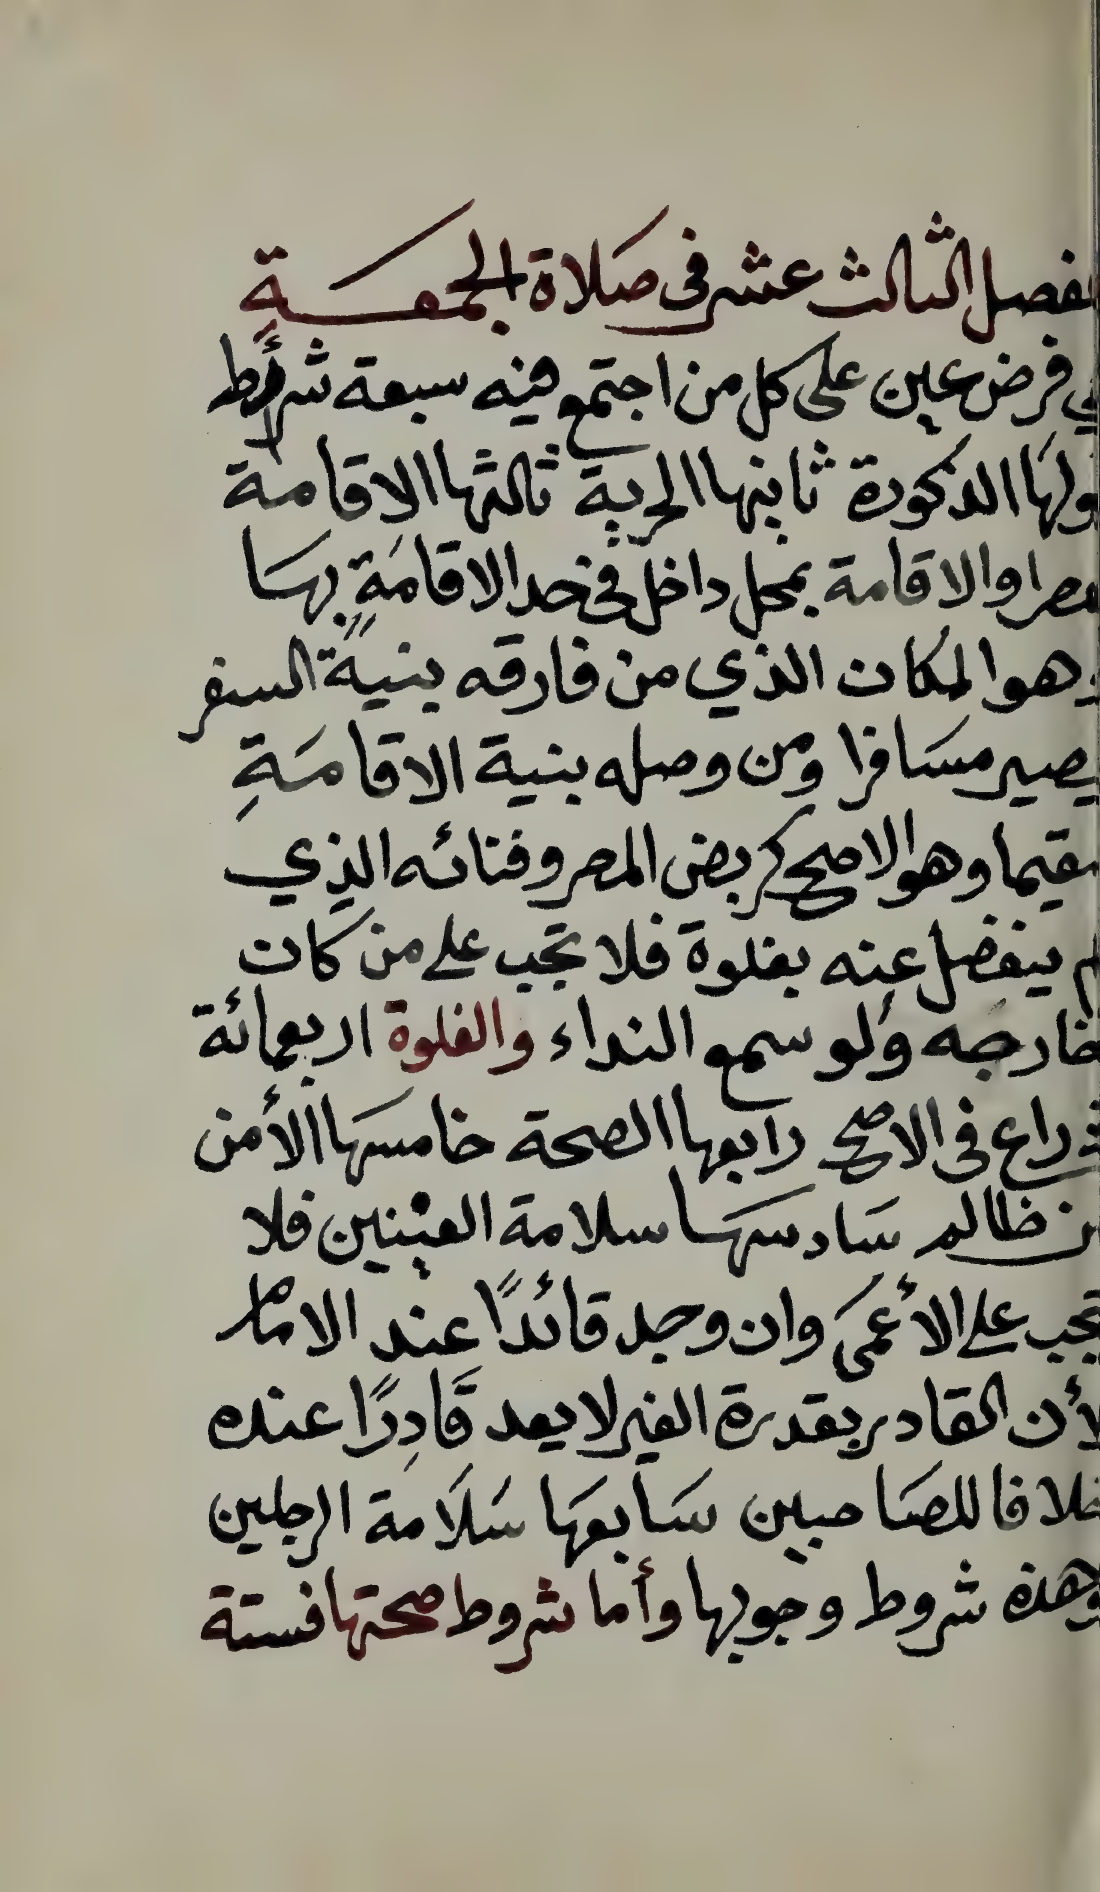 لفصل الثالث عشر في صلاة الجمعة
هي فرض عين على كل من اجتمع فيه سبعة شرائط
أولها الذكورة ثانيها الحرية ثالثها الاقامة
بمصر او الاقامة بمحل داخل في حد الاقامة بها
وهو المكان الذي من فارقه بنية السفر
يصير مسافرا ومن وصله بنية الاقامة
مقيما وهو الاصح كربض المصر وفنائه الذي
لم ينفصل عنه بغلوة فلا تجب على من كان
خارجه ولو سمع النداء والغلوة اربعمائة
ذراع في الاصح رابعها الصحة خامسها الأمن
من ظالم سادسها سلامة العينين فلا
تجب على الأعمى وان وجد قائدًا عند الامام
لأن القادر بقدرة الغير لا يعد قادرًا عنده
خلافا للصاحبين سابعها سلامة الرجلين
وهذه شروط وجوبها وأما شروط صحتها فستة